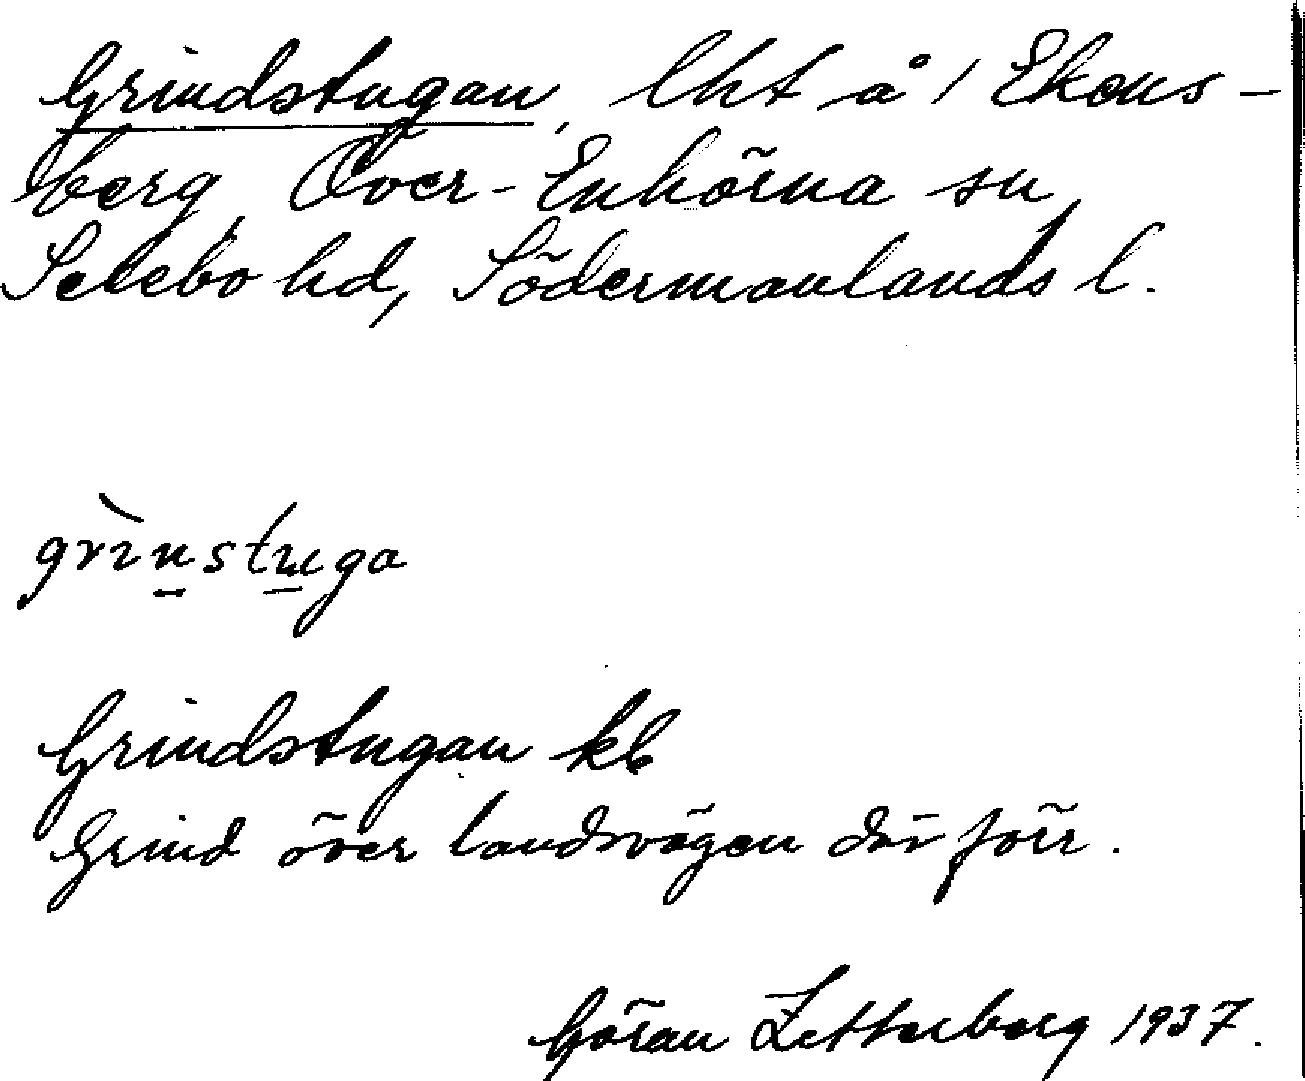 Grindstugan, lht å 1 Ekens-
berg, Över-Enhörna sn,
Selebo hd, Södermanlands l.
grı̀n̠stu̠ga
Grindstugan kb
Grind över landsvägen där förr.
Göran Zetterberg 1937.